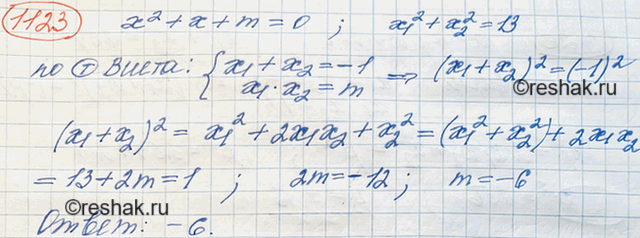 1123 x² + x + m = 0 ; x₁² + x₂² = 13
по Т Виета: { x₁ + x₂ = -1
x₁ · x₂ = m ⇒ (x₁ + x₂)² = (-1)²
©reshak.ru
(x₁ + x₂)² = x₁² + 2x₁x₂ + x₂² = (x₁² + x₂²) + 2x₁x₂
= 13 + 2m = 1 ; 2m = -12 ; m = -6
©reshak.ru
Ответ: -6.